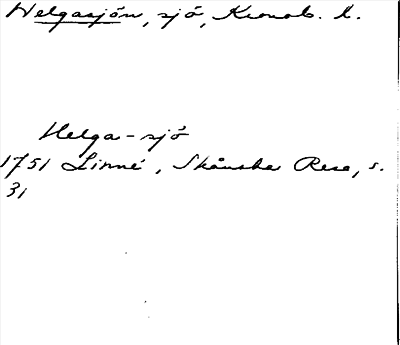 Helgasjön, sjö, Kronob. l.
Helga-sjö
1751 Linné, Skånska Resa, s.
31